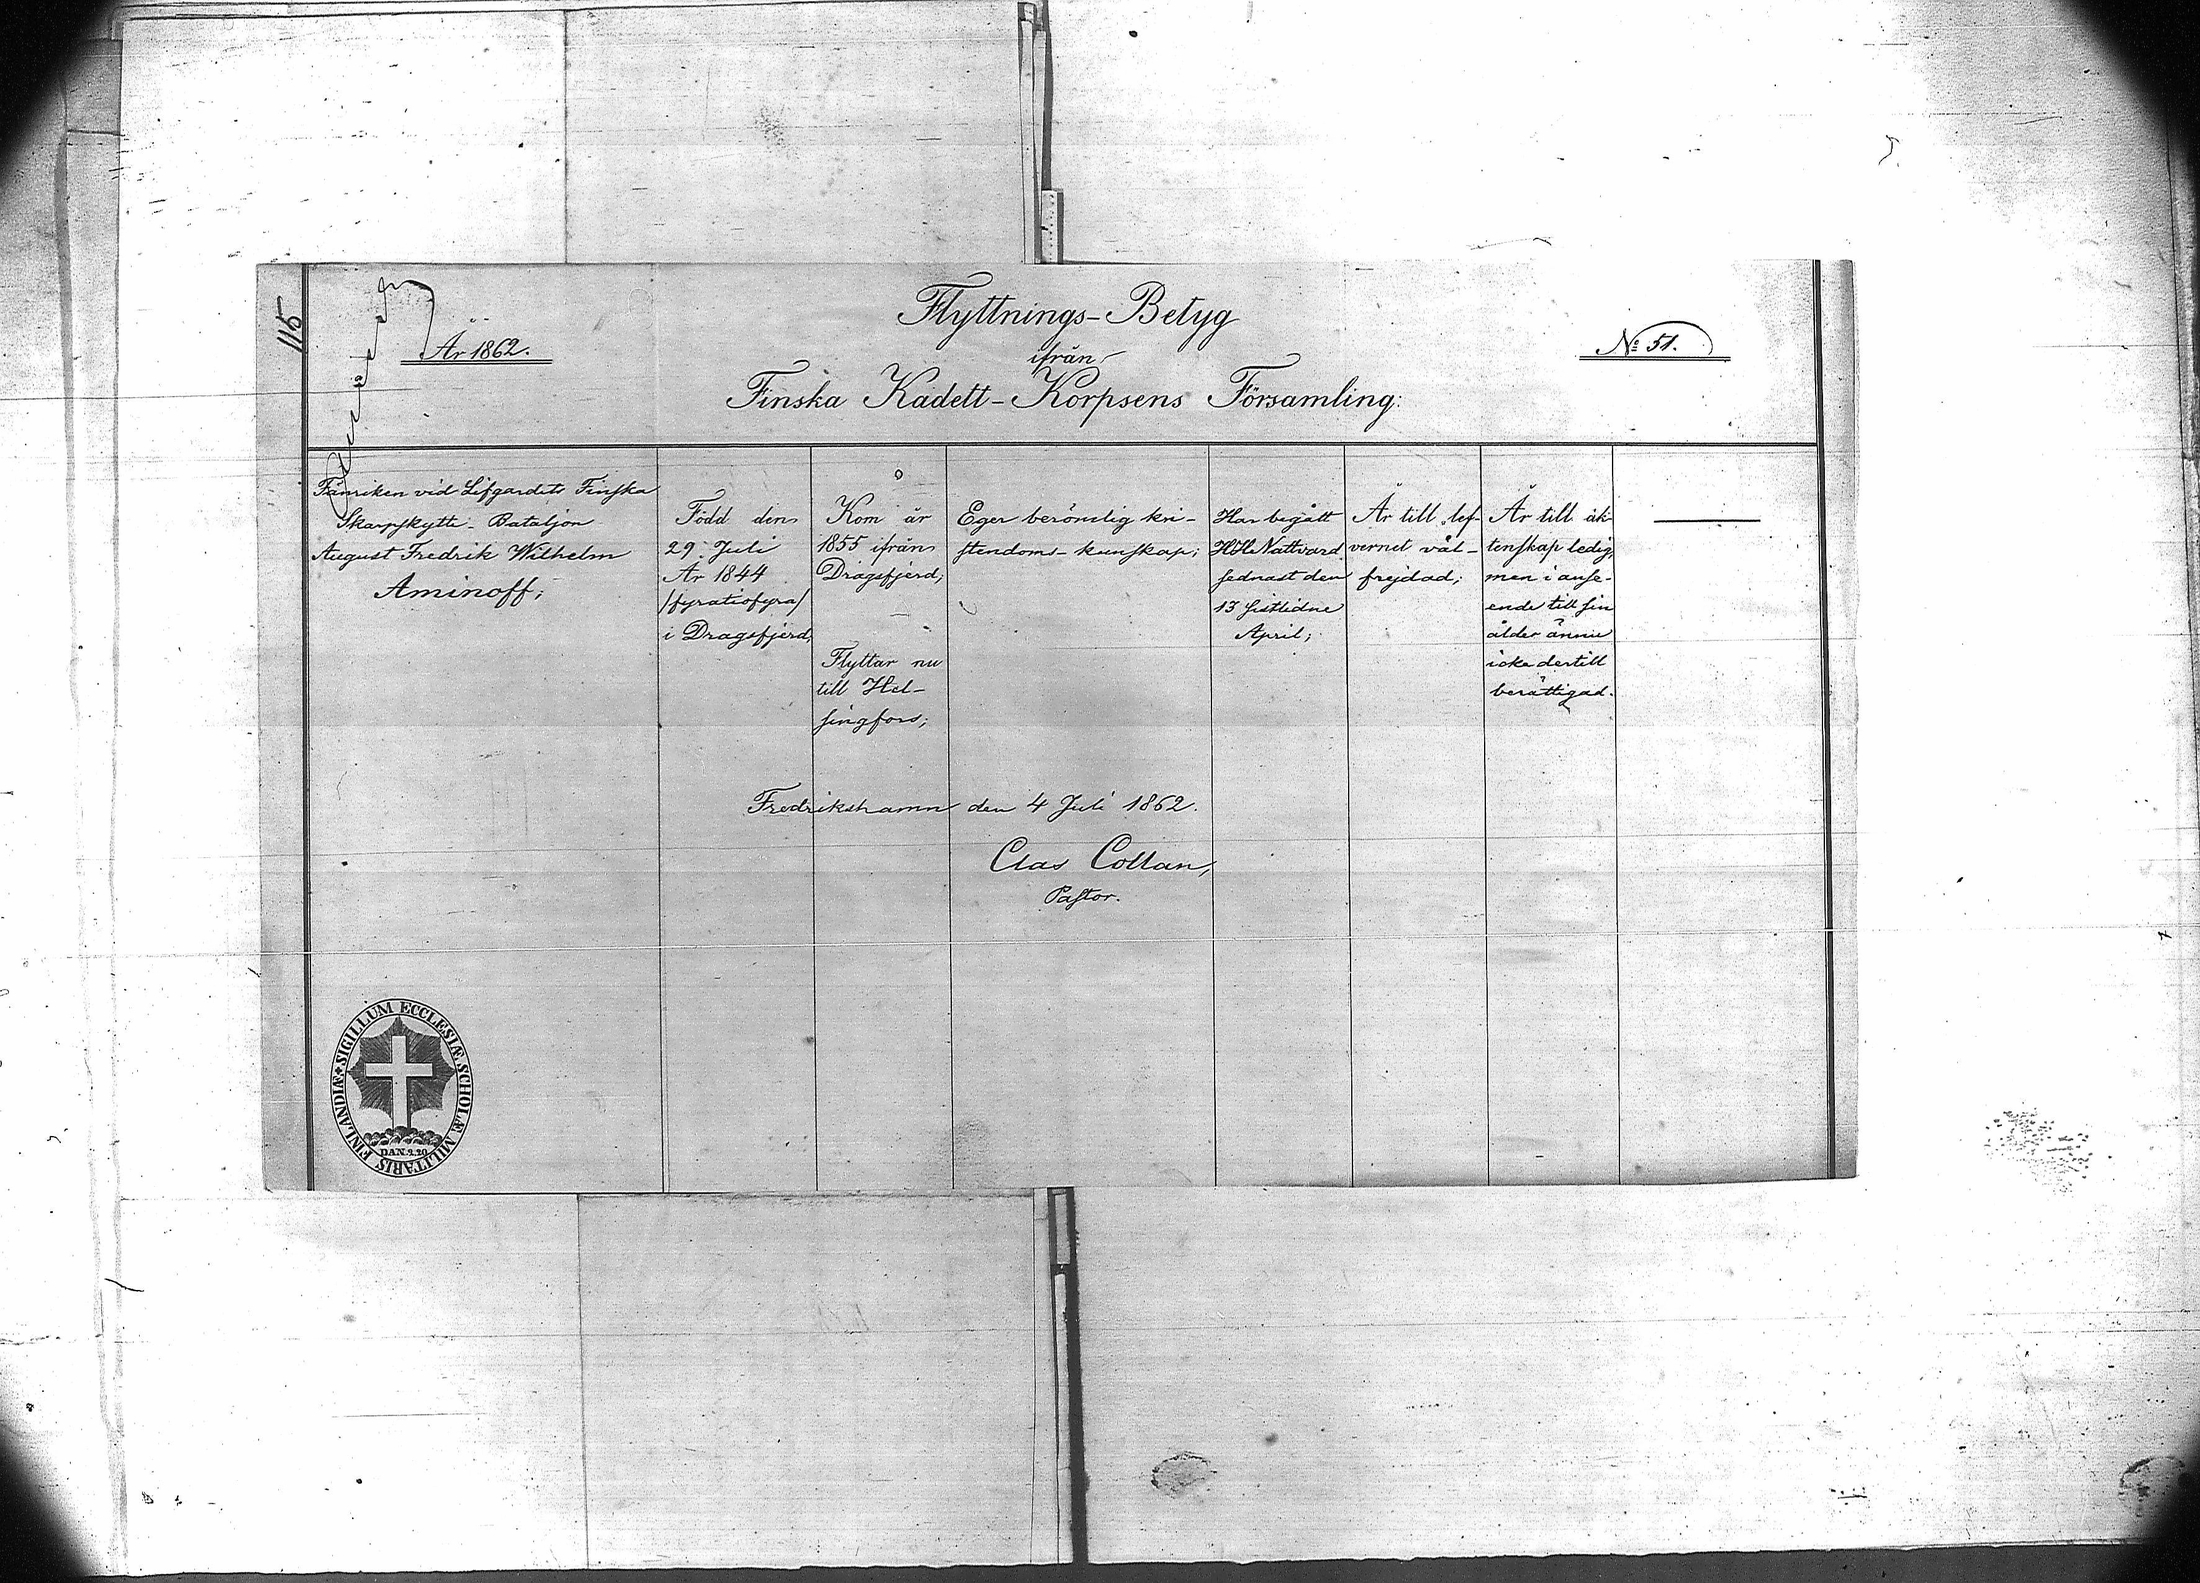 115
År 1862.
Flyttnings-Betyg
ifrån
Finska Kadett-Korpsens Församling:
No 51.
Fänriken vid Lifgardets Finska
Skarpskytte-Bataljon
August Fredrik Wilhelm
Aminoff;
Född den
29 Juli
År 1844
/fyratiofyra/
i Dragsfjerd;
Kom år
1855 ifrån
Dragsfjerd;
Flyttar nu
till Hel-
singfors;
Eger berömlig kri-
stendoms-kunskap;
Har begått
H.H. Nattvard
sednast den
13 sistlidne
April;
Är till lef-
vernet väl-
frejdad;
Är till äk-
tenskap ledig,
men i anse-
ende till sin
ålder ännu
icke dertill
berättigad.
Fredrikshamn den 4 Juli 1862.
Clas Collan,
Pastor.
SIGILLUM ECCLESIÆ SCHOLÆ MILITARIS FINLANDIÆ
DAN. 2. 20